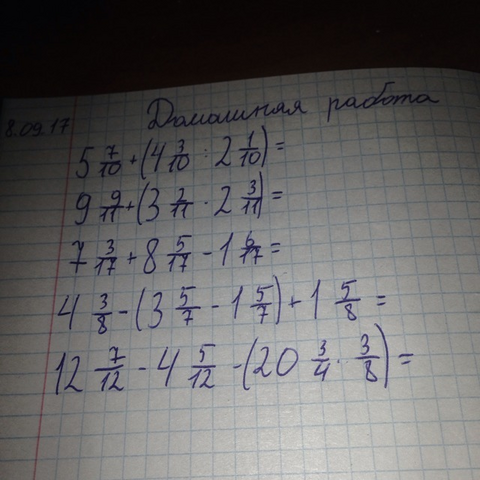 8.09.17 Домашняя работа
5 7/10 + (4 3/10 : 2 1/10) =
9 9/11 + (3 2/11 · 2 3/11) =
7 3/17 + 8 5/17 - 1 6/17 =
4 3/8 - (3 5/7 - 1 5/7) + 1 5/8 =
12 7/12 - 4 5/12 - (20 3/4 · 3/8) =